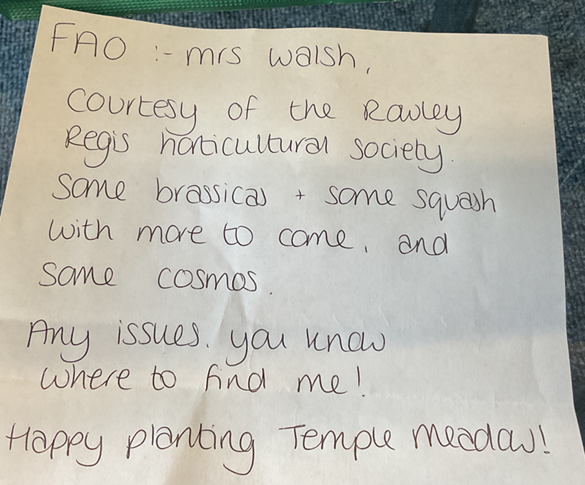 FAO :- mrs walsh,
courtesy of the Rowley
Regis horticultural society.
Some brassicas + some squash
with more to come, and
some cosmos.
Any issues. you know
where to find me!
Happy planting Temple Meadow!